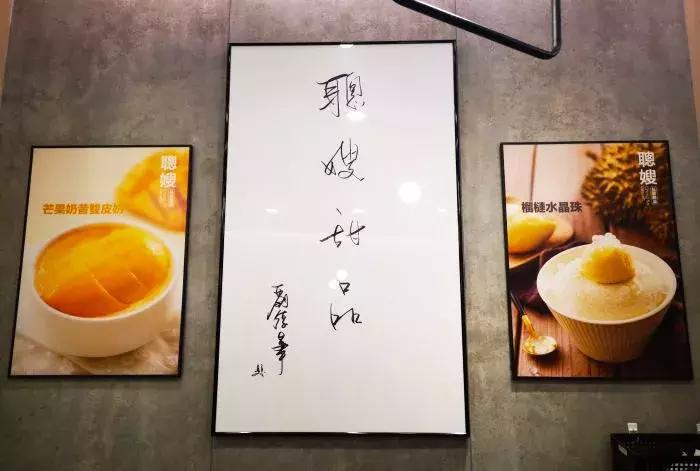 聰嫂
芒果奶昔雙皮奶
聰嫂甜品
聰嫂
榴槤水晶珠